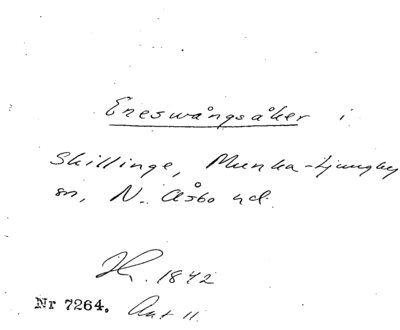 Eneswångsåker i
Skillinge, Munka-Ljungby
sn, N. Åsbo hd.
1842
Nr 7264. Akt 11